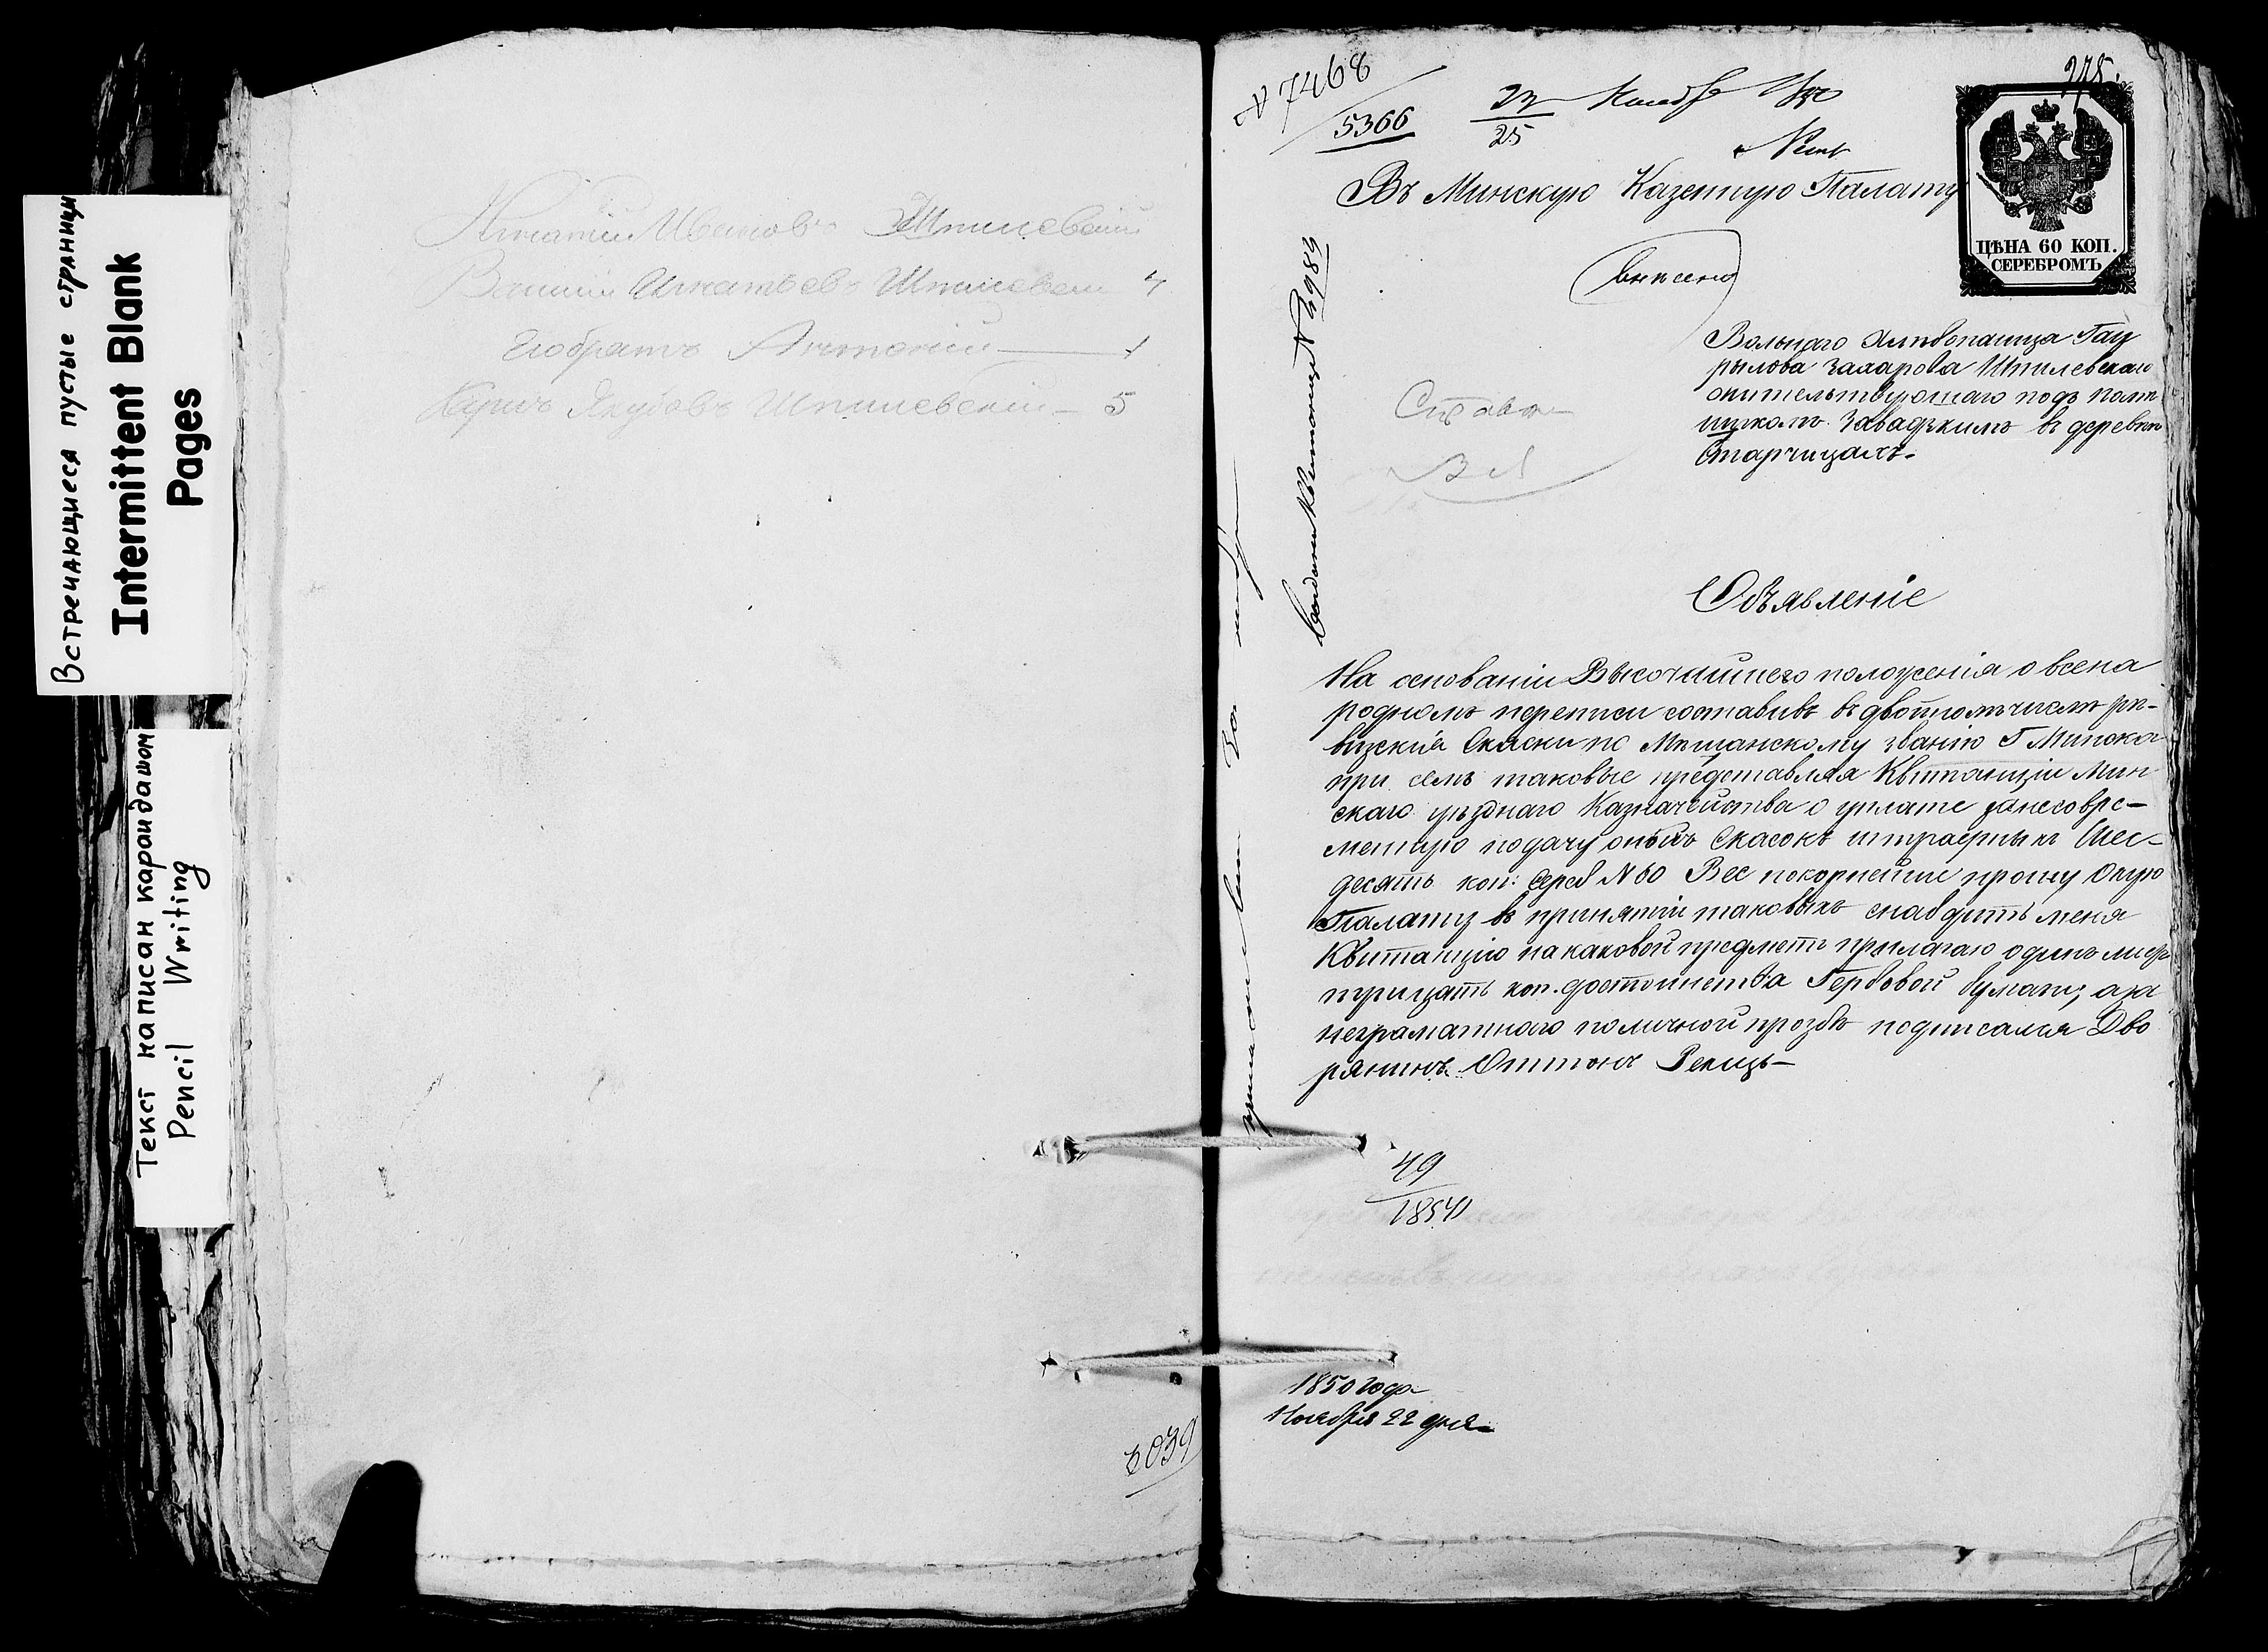 Встречающиеся пустые страницы
Intermittent Blank
Pages
Текст написан карандашом
Pencil Writing
Игнатий Иванов Шпилевский
Игнатьев Шпилевский 4
Его братъ Антоній — 1
Якубовъ Шпилевскій — 5
6039
N 7468
5366
23
25
275.
Въ Минскую Казенную Палату
ЦѢНА 60 КОП.
СЕРЕБРОМЪ
Вольнаго Хлѣбопашца Гау
рылова Захарова Шпилевскаго
жительствующаго подъ помѣ
щикомъ Завадзкимъ въ деревнѣ
Старчицахъ.
Справк
Квитанція N 4984
Объявленіе
На основаніи Высочайшего положенія о всена
родномъ переписи составивъ въ двойномъ числѣ ре-
визскія Скаски по Мѣщанскому званію Г Минска
при семъ таковые представляя Квитанціи Мин
скаго уѣзднаго Казначейства о уплате занесовре-
менную подачу оныхъ Скасокъ штрафныхъ Шес-
десятъ коп: сереб N 60 Все покорнейше прошу Оную
Палату въ принятіи таковыхъ снабдить меня
Квитанцію на каковой предметъ прилагаю одинъ листъ
трицать коп. достоинства Гербовой бумаги, а за
неграматного по личной прозбѣ подписался Дво
рянинъ Оттонъ
49
1850
1850 года
Ноября 22 дня